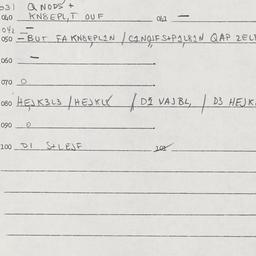 031 Q NODS +
040 KN8EPL,T OUF 041 —
042 —
050 – BUT FAKN8EPL2N / C2NQIFS+P2L82N QAP 2EL
060 —
070 0
080 HEJK3L3 / HEJKLK / D2 VAJBL, / D3 HEJK
090 0
100 DI S+LEJF 101